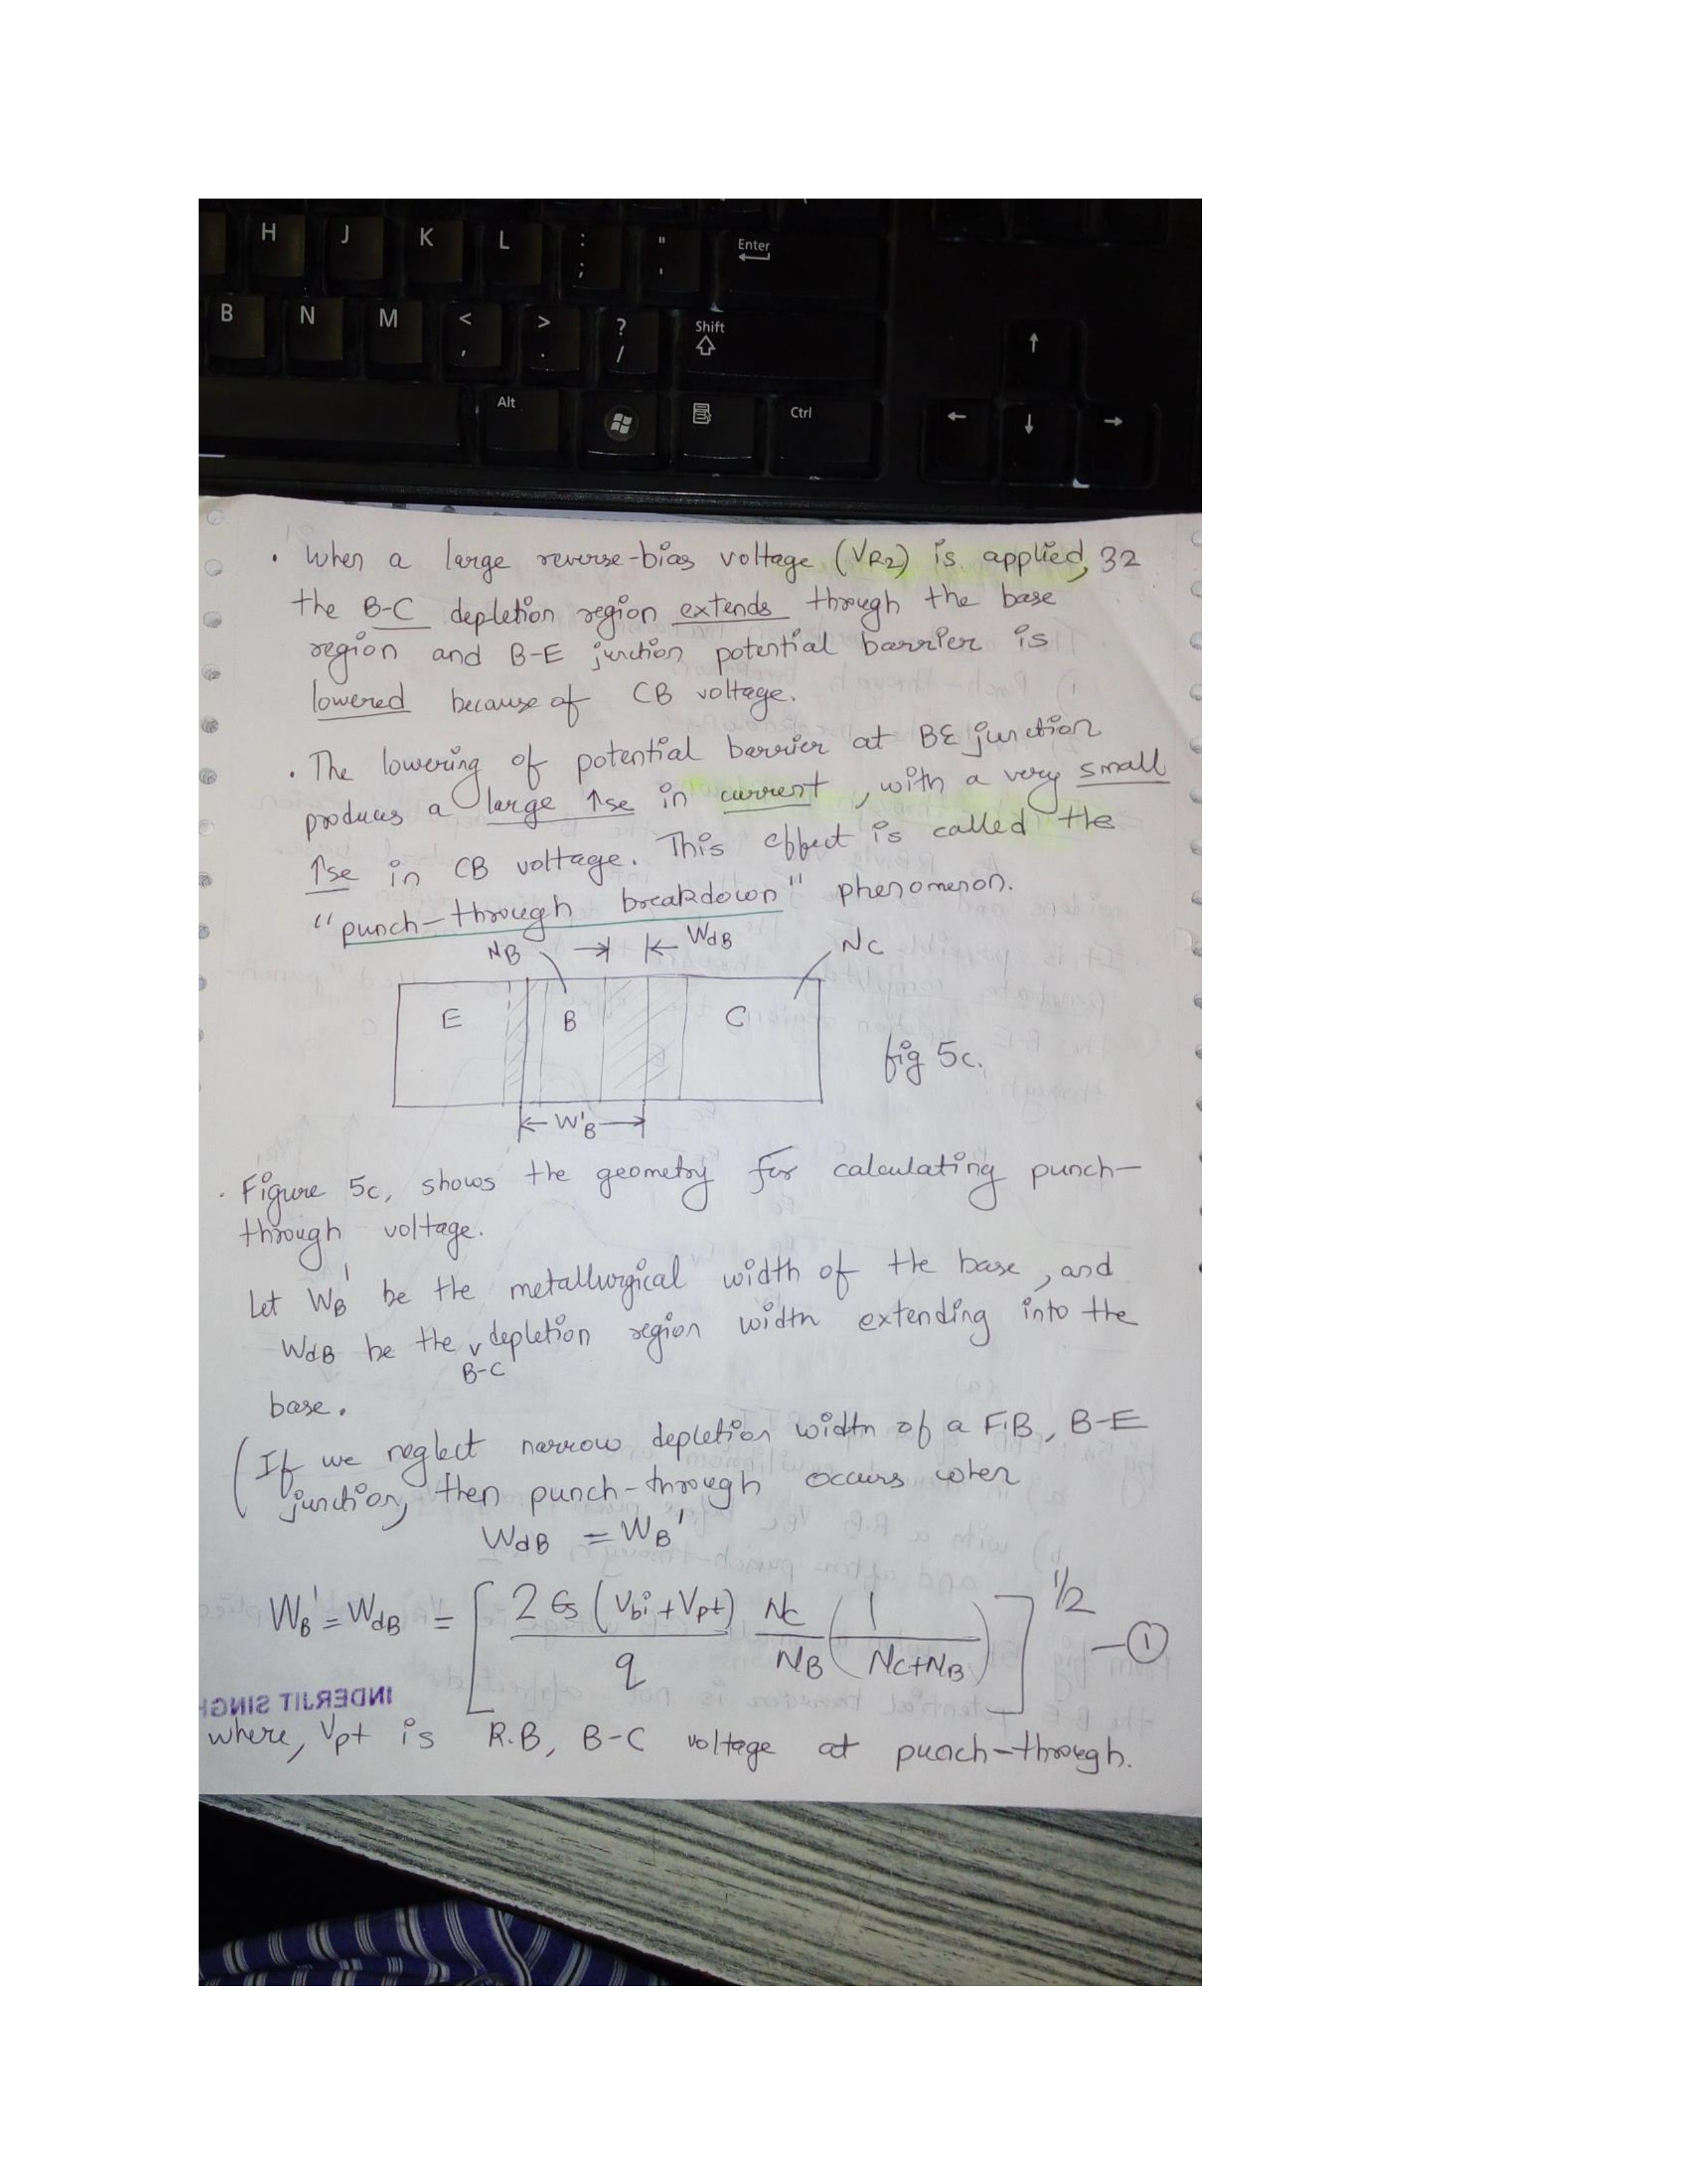 H J K L : ; " ' Enter
B N M < , > . ? / Shift
Alt Ctrl
• When a large reverse-bias voltage (VR2) is applied, 32
the B-C depletion region extends through the base
region and B-E junction potential barrier is
lowered because of CB voltage.
• The lowering of potential barrier at BE junction
produces a large ↑se in current, with a very small
↑se in CB voltage. This effect is called the
"punch-through breakdown" phenomenon.
NB → ← WdB NC
E B C
fig 5c.
← W'B →
• Figure 5c, shows the geometry for calculating punch-
through voltage.
Let WB' be the metallurgical width of the base, and
WdB be the B-C depletion region width extending into the
base.
(If we neglect narrow depletion width of a F.B, B-E
junction, then punch-through occurs when
WdB = WB'
WB' = WdB = [2 ϵs (Vbi + Vpt) / q NC / NB (1 / NC+NB)]^1/2 — ①
INDERJIT SINGH
where, Vpt is R.B, B-C voltage at punch-through.